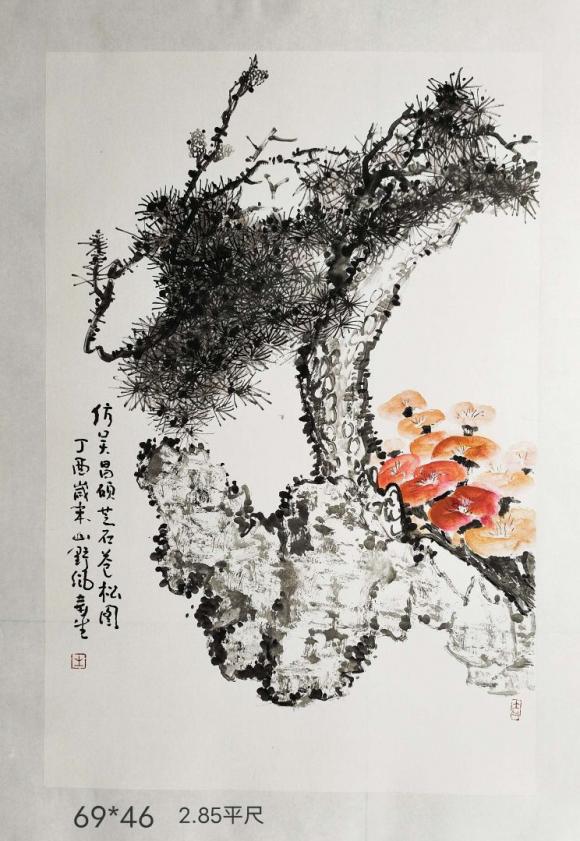 仿吴昌硕芝石苍松图
丁酉岁末山野
69*46 2.85平尺